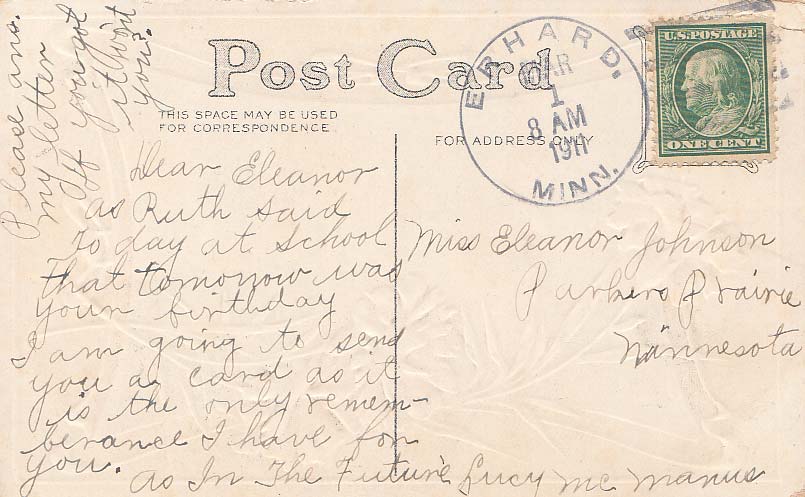 Please ans.
my letter
If you got
it won't
you?
Post Card
THIS SPACE MAY BE USED
FOR CORRESPONDENCE
FOR ADDRESS ONLY
ERHARD.
MAR
1
8 AM
1911
MINN.
U.S. POSTAGE
ONE CENT
Dear Eleanor
as Ruth said
to day at school
that tomorrow was
your birthday
I am going to send
you a card as it
is the only remem-
berance I have for
you.
As In The Future Lucy Mc Manus
Miss Eleanor Johnson
Parkers Prairie
Minnesota